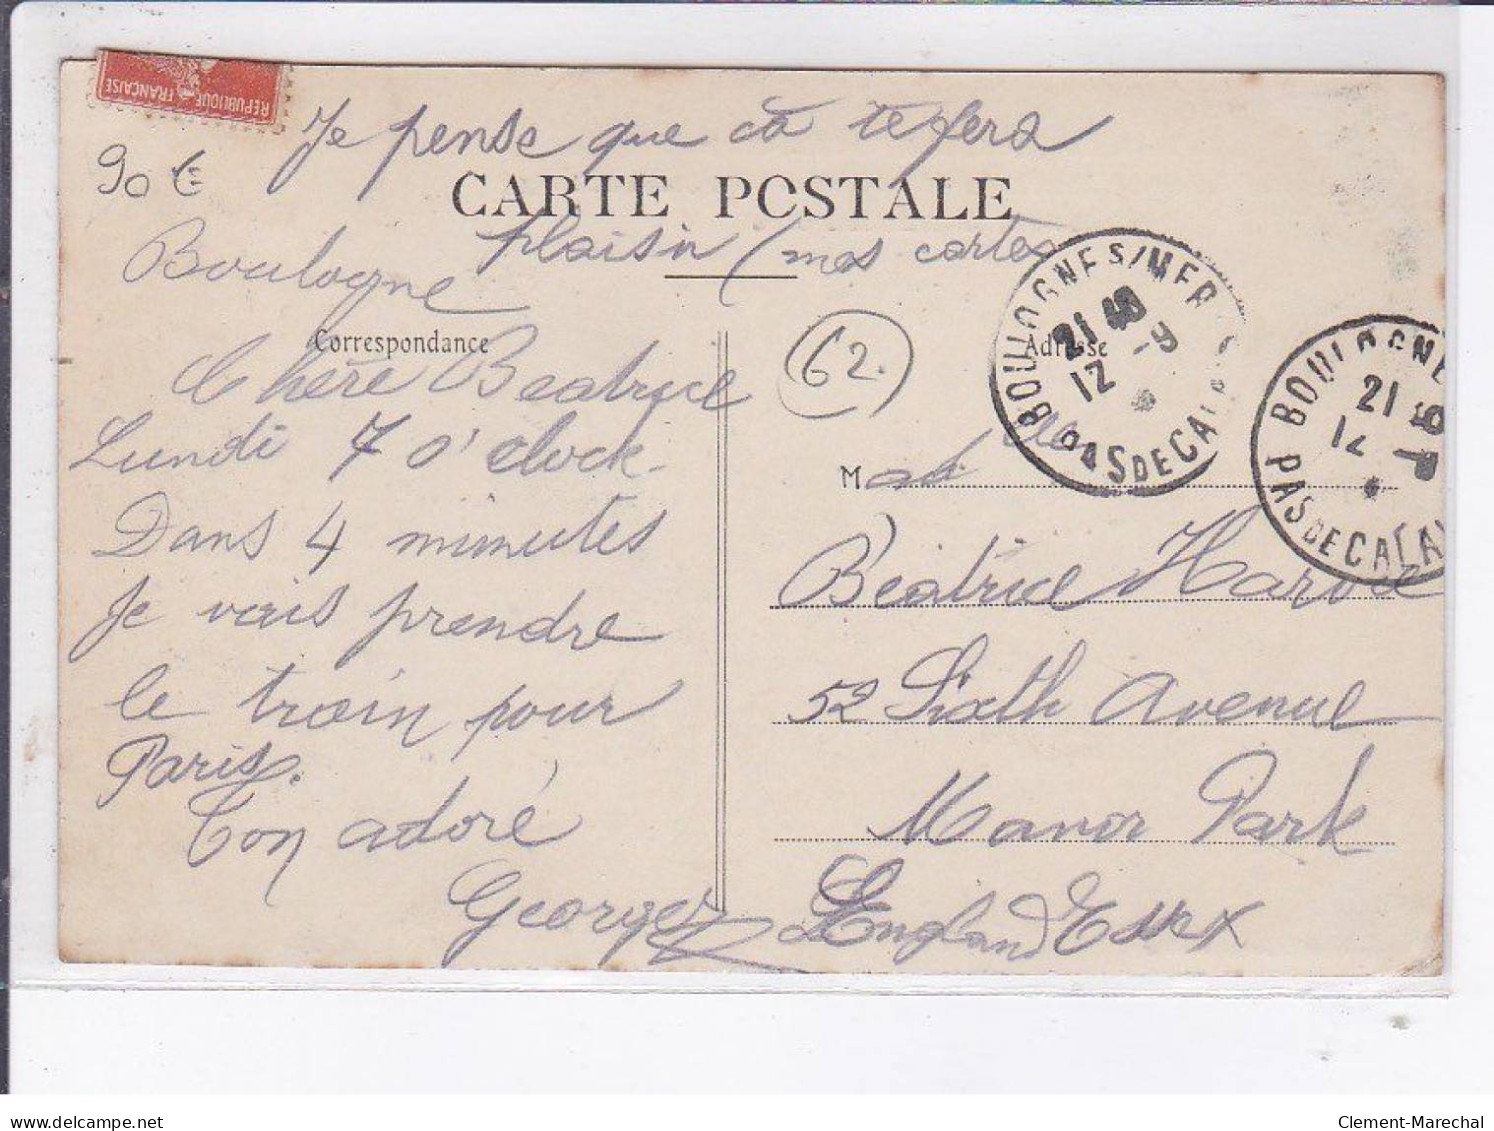 REPUBLIQUE FRANÇAISE
Je pense que ca te fera
90 €
CARTE POSTALE
plaisir (mes cartes
Boulogne
Correspondance
Adresse
62.
BOULOGNE S/MER
21 40
12 - 9
PAS DE CALAIS
BOULOGNE
21
12 - 9
PAS DE CALAI
Chère Beatrice
Lundi 7 o'clock.
Dans 4 minutes
Je vais prendre
le train pour
Paris.
Ton adoré
Georges
Mad
Béatrice Harvie
52 Sixth Avenue
Manor Park
England Essex
delcampe.net
Clement-Marechal